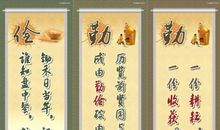 俭
锄禾日当午，
谁知盘中餐，
勤
历览前贤国
成由勤俭破
勤
一份耕耘
一份收获